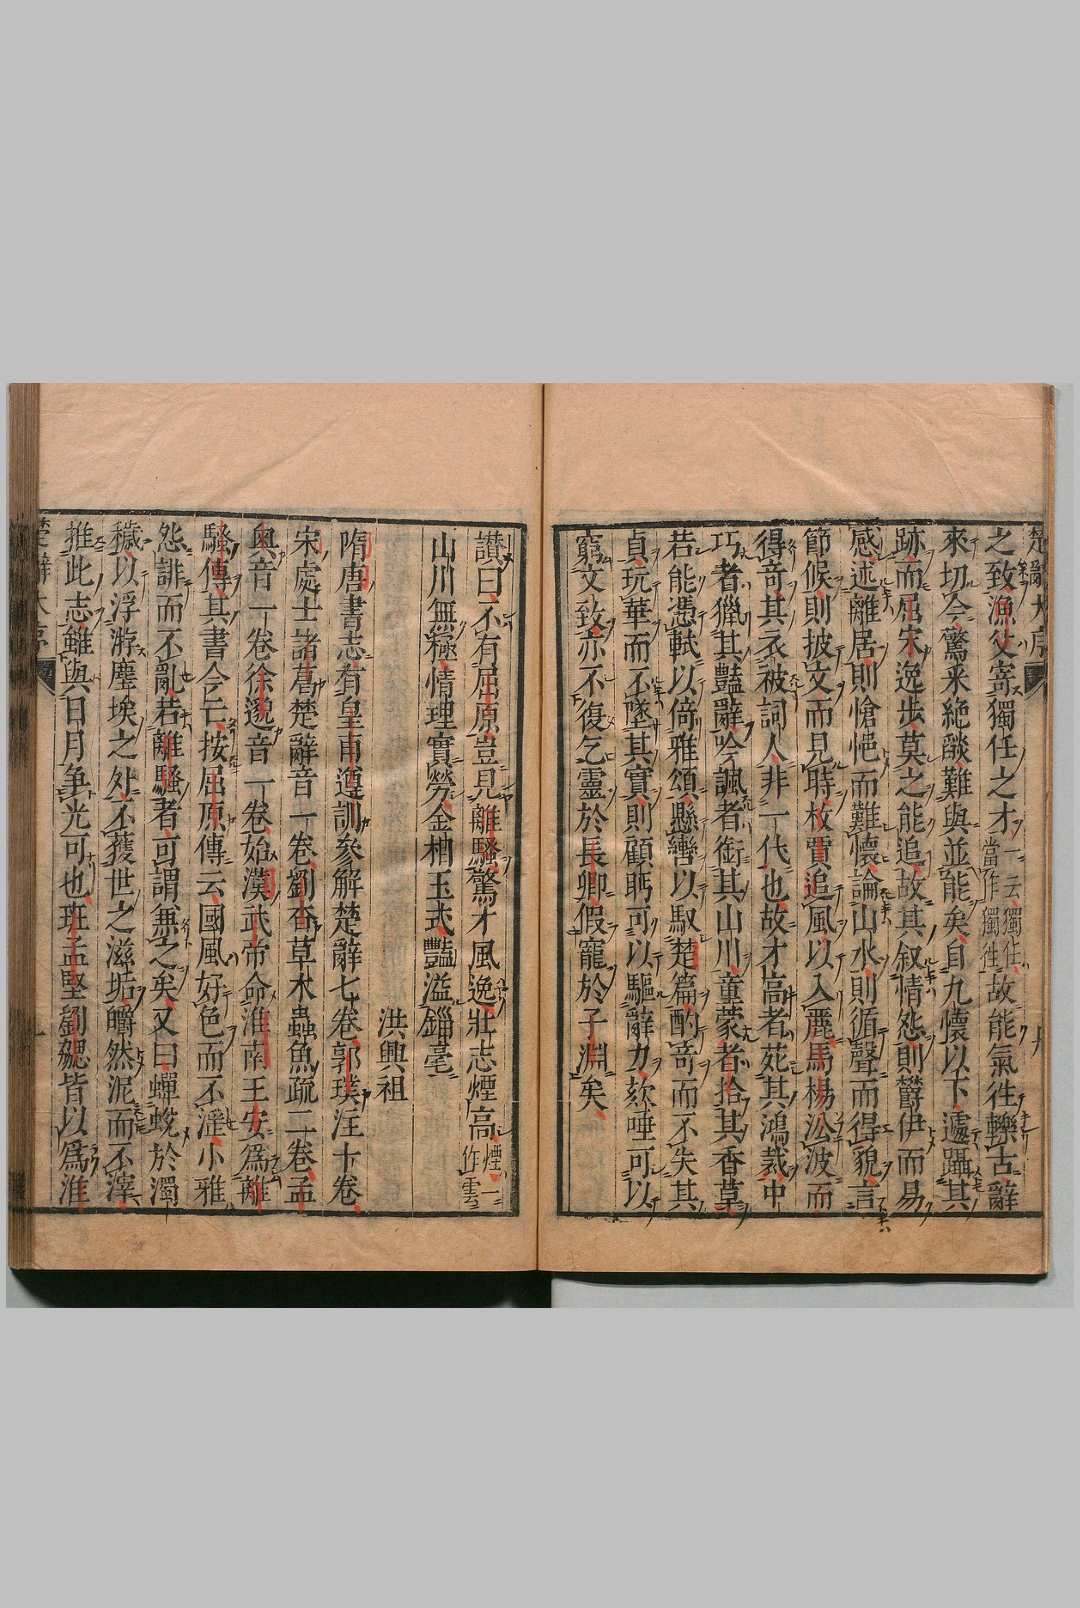 楚辭大序
之致漁父寄獨任之才一云獨任當作獨往故能氣往轢古辭
來切今驚采絶𦦨難與並能矣自九懷以下遽躡其
跡而屈宋逸步莫之能追故其叙情怨則欝伊而易
感述離居則愴怏而難懷論山水則循聲而得貌言
節候則披文而見時枚賈追風以入麗馬楊㳂波而
得竒其衣被詞人非一代也故才高者菀其鴻裁中
巧者獵其豔辭吟諷者銜其山川童蒙者拾其香草
若能憑軾以倚雅頌懸轡以馭楚篇酌竒而不失其
貞玩華而不墜其實則顧眄可以驅辭力欬唾可以
窮文致亦不復乞靈於長卿假寵於子淵矣
讃曰不有屈原豈見離騷驚才風逸壯志煙高煙一作雲
山川無極情理實勞金相玉式豔溢錙毫
洪興祖
隋唐書志有皇甫遵訓參解楚辭七卷郭璞注十卷
宋處士諸葛楚辭音一卷劉杳草木蟲魚疏二卷孟
奥音一卷徐邈音一卷始漢武帝命淮南王安爲離
騷傳其書今亡按屈原傳云國風好色而不淫小雅
怨誹而不亂若離騷者可謂兼之矣又曰蟬蛻於濁
穢以浮游塵埃之外不獲世之滋垢皭然泥而不滓
推此志雖與日月争光可也班孟堅劉勰皆以爲淮
楚辭大序